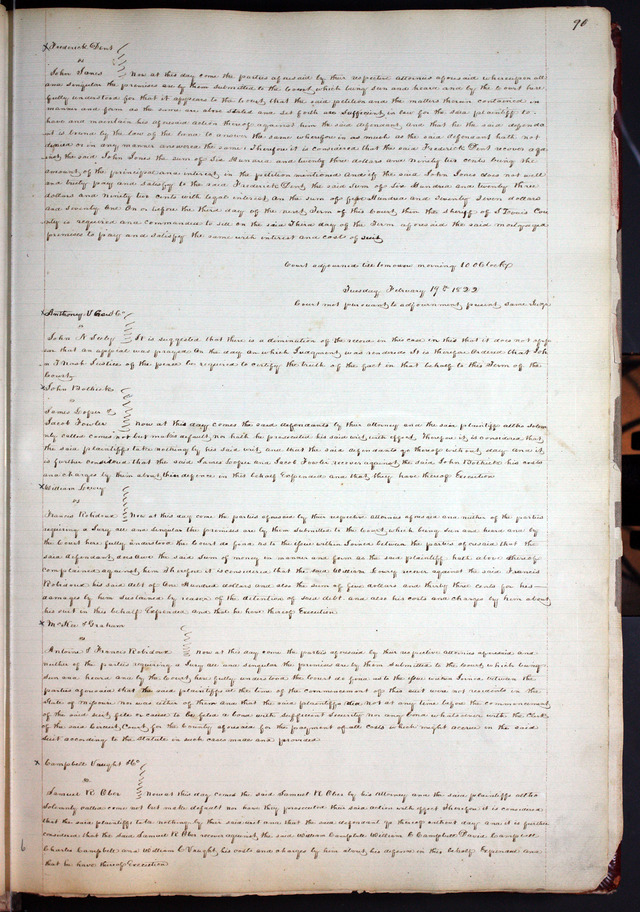 90
Frederick Dent
vs
John Jones Now at this day come the parties aforesaid by their respective attornies aforesaid whereupon all
and singular the premises are by them submitted to the Court, which being seen and heard and by the Court here
fully understood for that it appears to the Court, that the said petition and the matters therein contained in
manner and form as the same are above stated and set forth are sufficient in law for the said plaintiff to
have and maintain his aforesaid action thereof against him the said defendant, and that he the said defenda
nt is bound by the law of the land to answer the same wherefore in as much as the said defendant hath not
denied or in any manner answered the same: Therefore it is considered that the said Frederick Dent recover aga
inst the said John Jones the sum of Six Hundred and twenty three dollars and Ninety two cents being the
amount of the principal and interest, in the petition mentioned And if the said John Jones does not well
and truly pay and satisfy to the said Frederick Dent, the said sum of Six Hundred and twenty three
dollars and ninety two cents with legal interest on the sum of Hundred and Twenty Seven dollars
and Seventy On or before the third day of the next Term of this Court, then the Sheriff of St Louis Cou
nty is required and commanded to sell on the said Third day of the Term aforesaid the said mortgaged
premises to pay and satisfy the same with interest and costs of suit
Court adjourned till tomorrow morning 10 OClock
Tuesday February 19th 1822
Court met pursuant to adjournment, present, same Judge
Anthony V Co
vs
John N Seely It is suggested that there is a diminution of the record in this case in this that it does not app
ear that an appeal was prayed on the day on which Judgment was rendered It is therefore Ordered that Joh
n Nash Justice of the peace be required to certify the truth of the fact in that behalf to this Term of the
Court
John Bollick
vs
James Logue &
Jacob Fowler Now at this day comes the said defendants by their attorney and the said plaintiff altho solem
nly called comes not but makes default, nor hath he prosecuted his said writ with effect, Therefore it is considered that
the said plaintiff take nothing by his said writ, and that the said defendants go thereof without, day And it
is further considered that the said James Logue and Jacob Fowler recover against, the said John Bollick his costs
and charges by them about their defence in this behalf Expended and that, they have thereof Execution
William Lowry
vs
Francis Robidoux Now at this day come the parties aforesaid by their respective attornies aforesaid and neither of the parties
requiring a Jury all and singular the premises are by them submitted to the Court, which being seen and heard and by
the Court here fully understood the Court do find as to the issue within Joined between the parties aforesaid that the
said defendant, doth owe the said sum of money in manner and form as the said plaintiff hath above thereof
complained against, him Therefore it is considered that, the said William Lowry recover against the said Francis
Robidoux his said debt of One Hundred dollars and also the sum of five dollars and thirty three cents for his
damages by him sustained by reason of the detention of said debt and also his costs and charges by him about
his suit in this behalf Expended and that he have thereof Execution
McKee & Graham
vs
Antoine & Francis Robidoux Now at this day come the parties aforesaid by their respective attornies aforesaid and
neither of the parties requiring a Jury all and singular the premises are by them submitted to the Court, which being
seen and heard and by the Court, here fully understood the Court do find as to the issue within Joined between the
parties aforesaid that the said plaintiffs at the time of the commencement of this suit were not residents in the
State of Missouri nor was either of them And that the said plaintiffs did not at any time before the commencement
of the said suit, file or cause to be filed a bond with sufficient security nor any bond whatsoever with the Clerk
of the said Circuit, Court, for the County aforesaid for the payment of all costs which might accrue in the said
Suit according to the Statute in such cases made and provided
Campbell Vaught & Co
vs
Samuel R Ober Now at this day comes the said Samuel R Ober by his attorney and the said plaintiffs altho
solemnly called come not but make default nor have they prosecuted their said action with effect Therefore it is considered
that the said plaintiffs take nothing by their said suit and that the said defendant go thereof without day and it is further
considered that the said Samuel R Ober recover against, the said William Campbell William C Campbell David Campbell
Charles Campbell and William C Vaught, his costs and charges by him about, his defence in this behalf Expended And
that he have thereof Execution